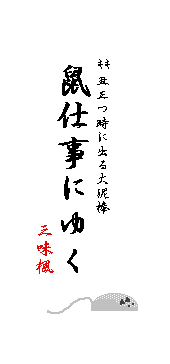 キキ丑三つ時に出る大泥棒
鼠仕事にゆく
三味楓